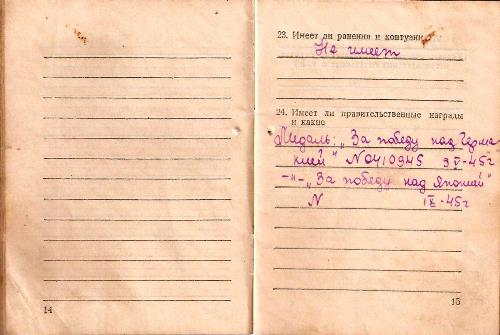 14
23. Имеет ли ранения и контузии
Не имеет
24. Имеет ли правительственные награды
и какие
Медаль: „За победу над Герма
нией" № 0410945 9 V-45г
–"– „За победу над Японией"
N IX-45г
15